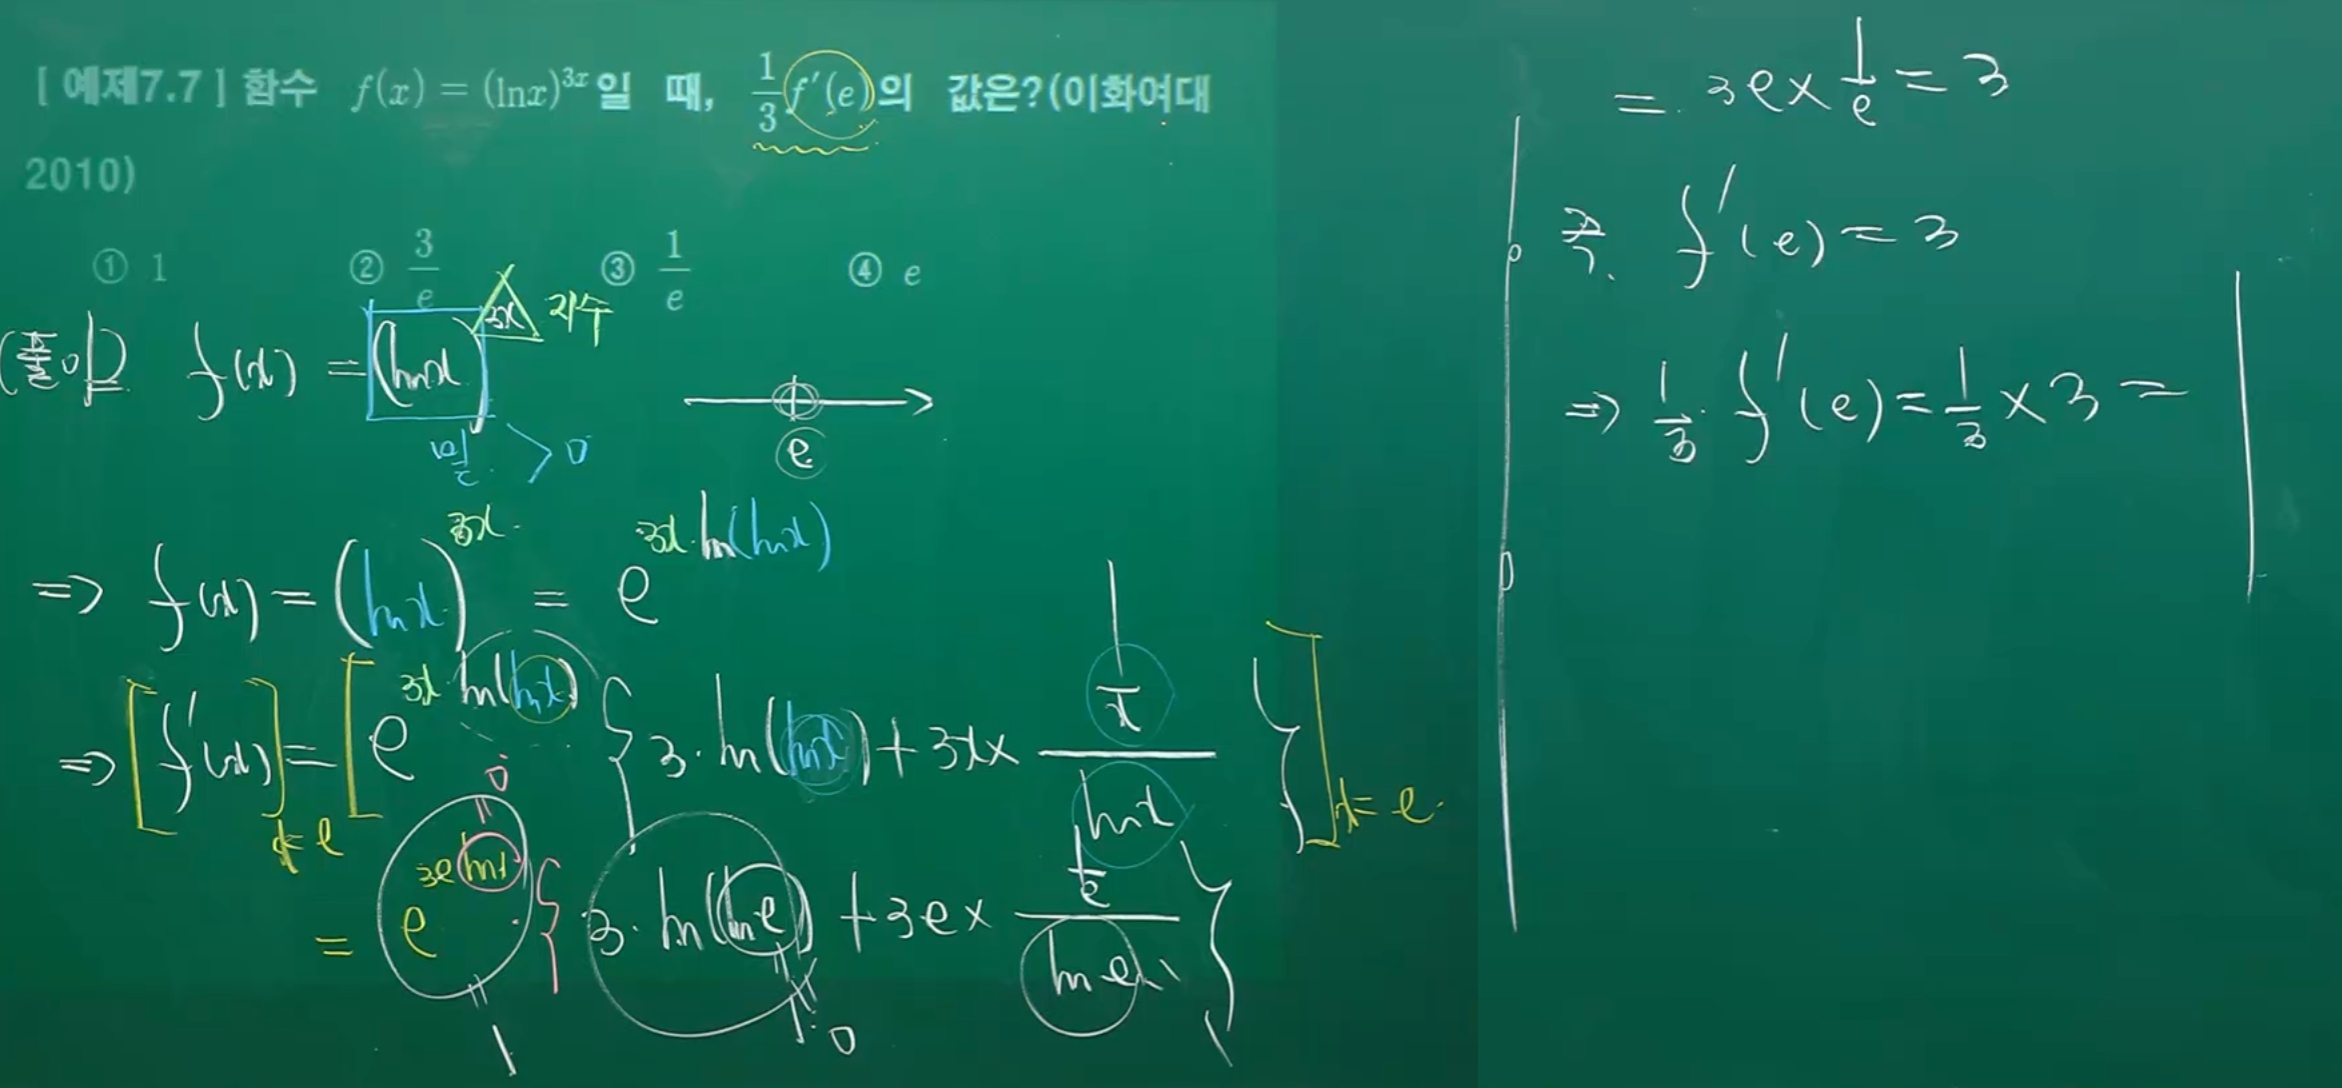 [ 예제7.7 ] 함수 f(x) = (lnx)^{3x} 일 때, \frac{1}{3}f'(e)의 값은?(이화여대
2010)
① 1 ② \frac{3}{e} ③ \frac{1}{e} ④ e
(풀이) f(x) = (lnx)^{3x} 지수
밑 > 0
e
⇒ f(x) = (lnx)^{3x} = e^{3x·ln(lnx)}
⇒ [f'(x)]_{x=e} = [e^{3x·ln(lnx)} {3·ln(lnx) + 3x × \frac{\frac{1}{x}}{lnx}}]_{x=e}
0
= e^{3e ln1} {3·ln(ln e) + 3e × \frac{\frac{1}{e}}{ln e}}
1 1 0
= 3e × \frac{1}{e} = 3
즉. f'(e) = 3
⇒ \frac{1}{3} f'(e) = \frac{1}{3} × 3 = 1